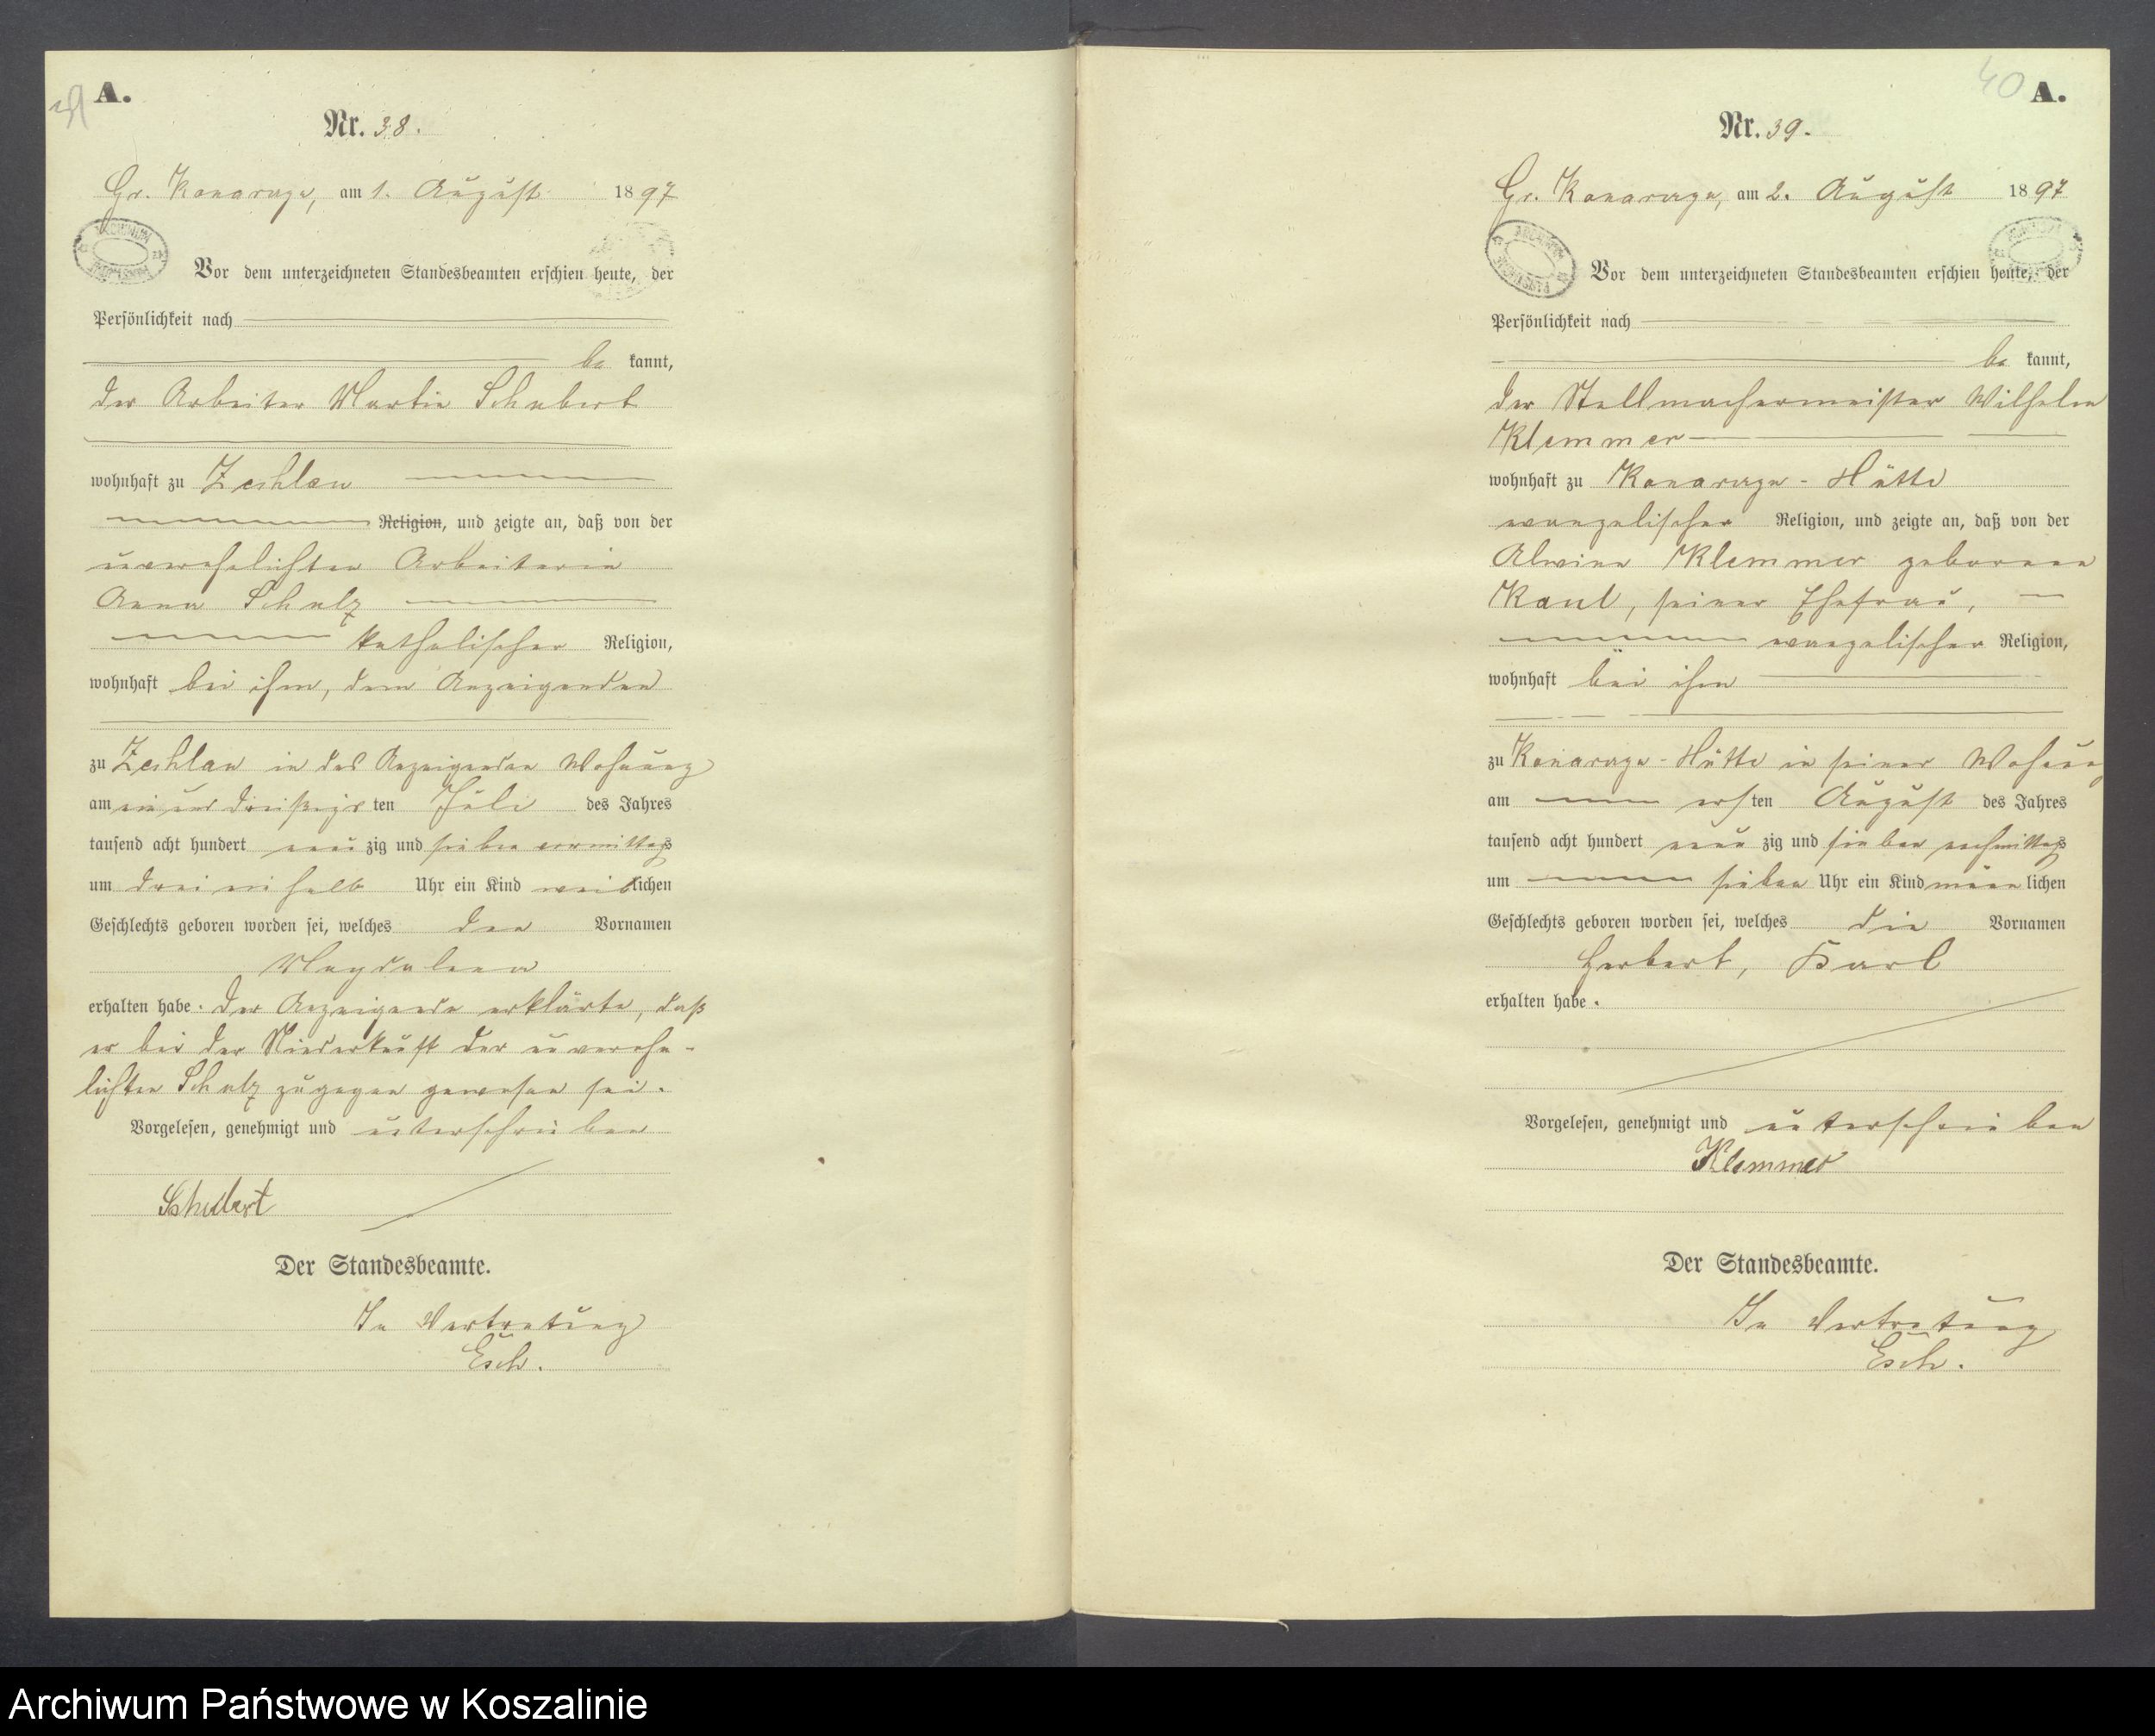 A.
Nr. 38.
Gr. Konarzyn, am 1. August 1897
Vor dem unterzeichneten Standesbeamten erschien heute, der
Persönlichkeit nach
be kannt,
der Arbeiter Martin Schubert
wohnhaft zu Zechlau
Religion, und zeigte an, daß von der
unverehelichten Arbeiterin
Anna Schulz
katholischer Religion,
wohnhaft bei ihm, dem Anzeigenden
zu Zechlau in des Anzeigenden Wohnung
am ein und dreißigs ten Juli des Jahres
tausend acht hundert neun zig und sieben vormittags
um drei ein halb Uhr ein Kind weiblichen
Geschlechts geboren worden sei, welches den Vornamen
Magdalena
erhalten habe. Der Anzeigende erklärte, daß
er bei der Niederkunft der unverehe-
lichten Schulz zugegen gewesen sei.
Vorgelesen, genehmigt und unterschrieben
Schubert
Der Standesbeamte.
In Vertretung
Esch.
40
A.
Nr. 39.
Gr. Konarzyn, am 2. August 1897
Vor dem unterzeichneten Standesbeamten erschien heute, der
Persönlichkeit nach
be kannt,
der Stellmachermeister Wilhelm
Klemmer
wohnhaft zu Konarzyn-Hütte
evangelischer Religion, und zeigte an, daß von der
Alwine Klemmer geborene
Kanl, seiner Ehefrau,
evangelischer Religion,
wohnhaft bei ihm
zu Konarzyn-Hütte in seiner Wohnung
am ersten August des Jahres
tausend acht hundert neun zig und sieben nachmittags
um sieben Uhr ein Kind männ lichen
Geschlechts geboren worden sei, welches die Vornamen
Herbert, Karl
erhalten habe.
Vorgelesen, genehmigt und unterschrieben
Klemmer
Der Standesbeamte.
In Vertretung
Esch.
Archiwum Państwowe w Koszalinie